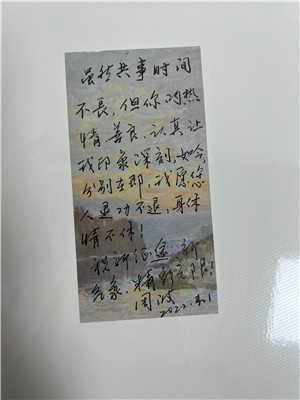 虽然共事时间
不长,但你的热
情、善良、认真让
我印象深刻,如今
分别在即,我愿您
人退功不退,身休
情不休!
祝新征途新
气象,精彩无限!
周波
2022.4.1